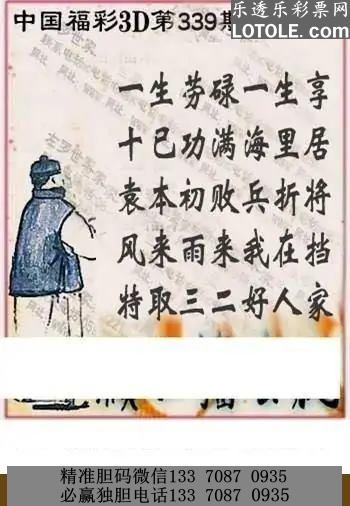 中国福彩3D第339期
乐透乐彩票网
LOTOLE.COM
一生劳碌一生享
十已功满海里居
袁本初败兵折将
风来雨来我在挡
特取三二好人家
精准胆码微信133 7087 0935
必赢独胆电话133 7087 0935